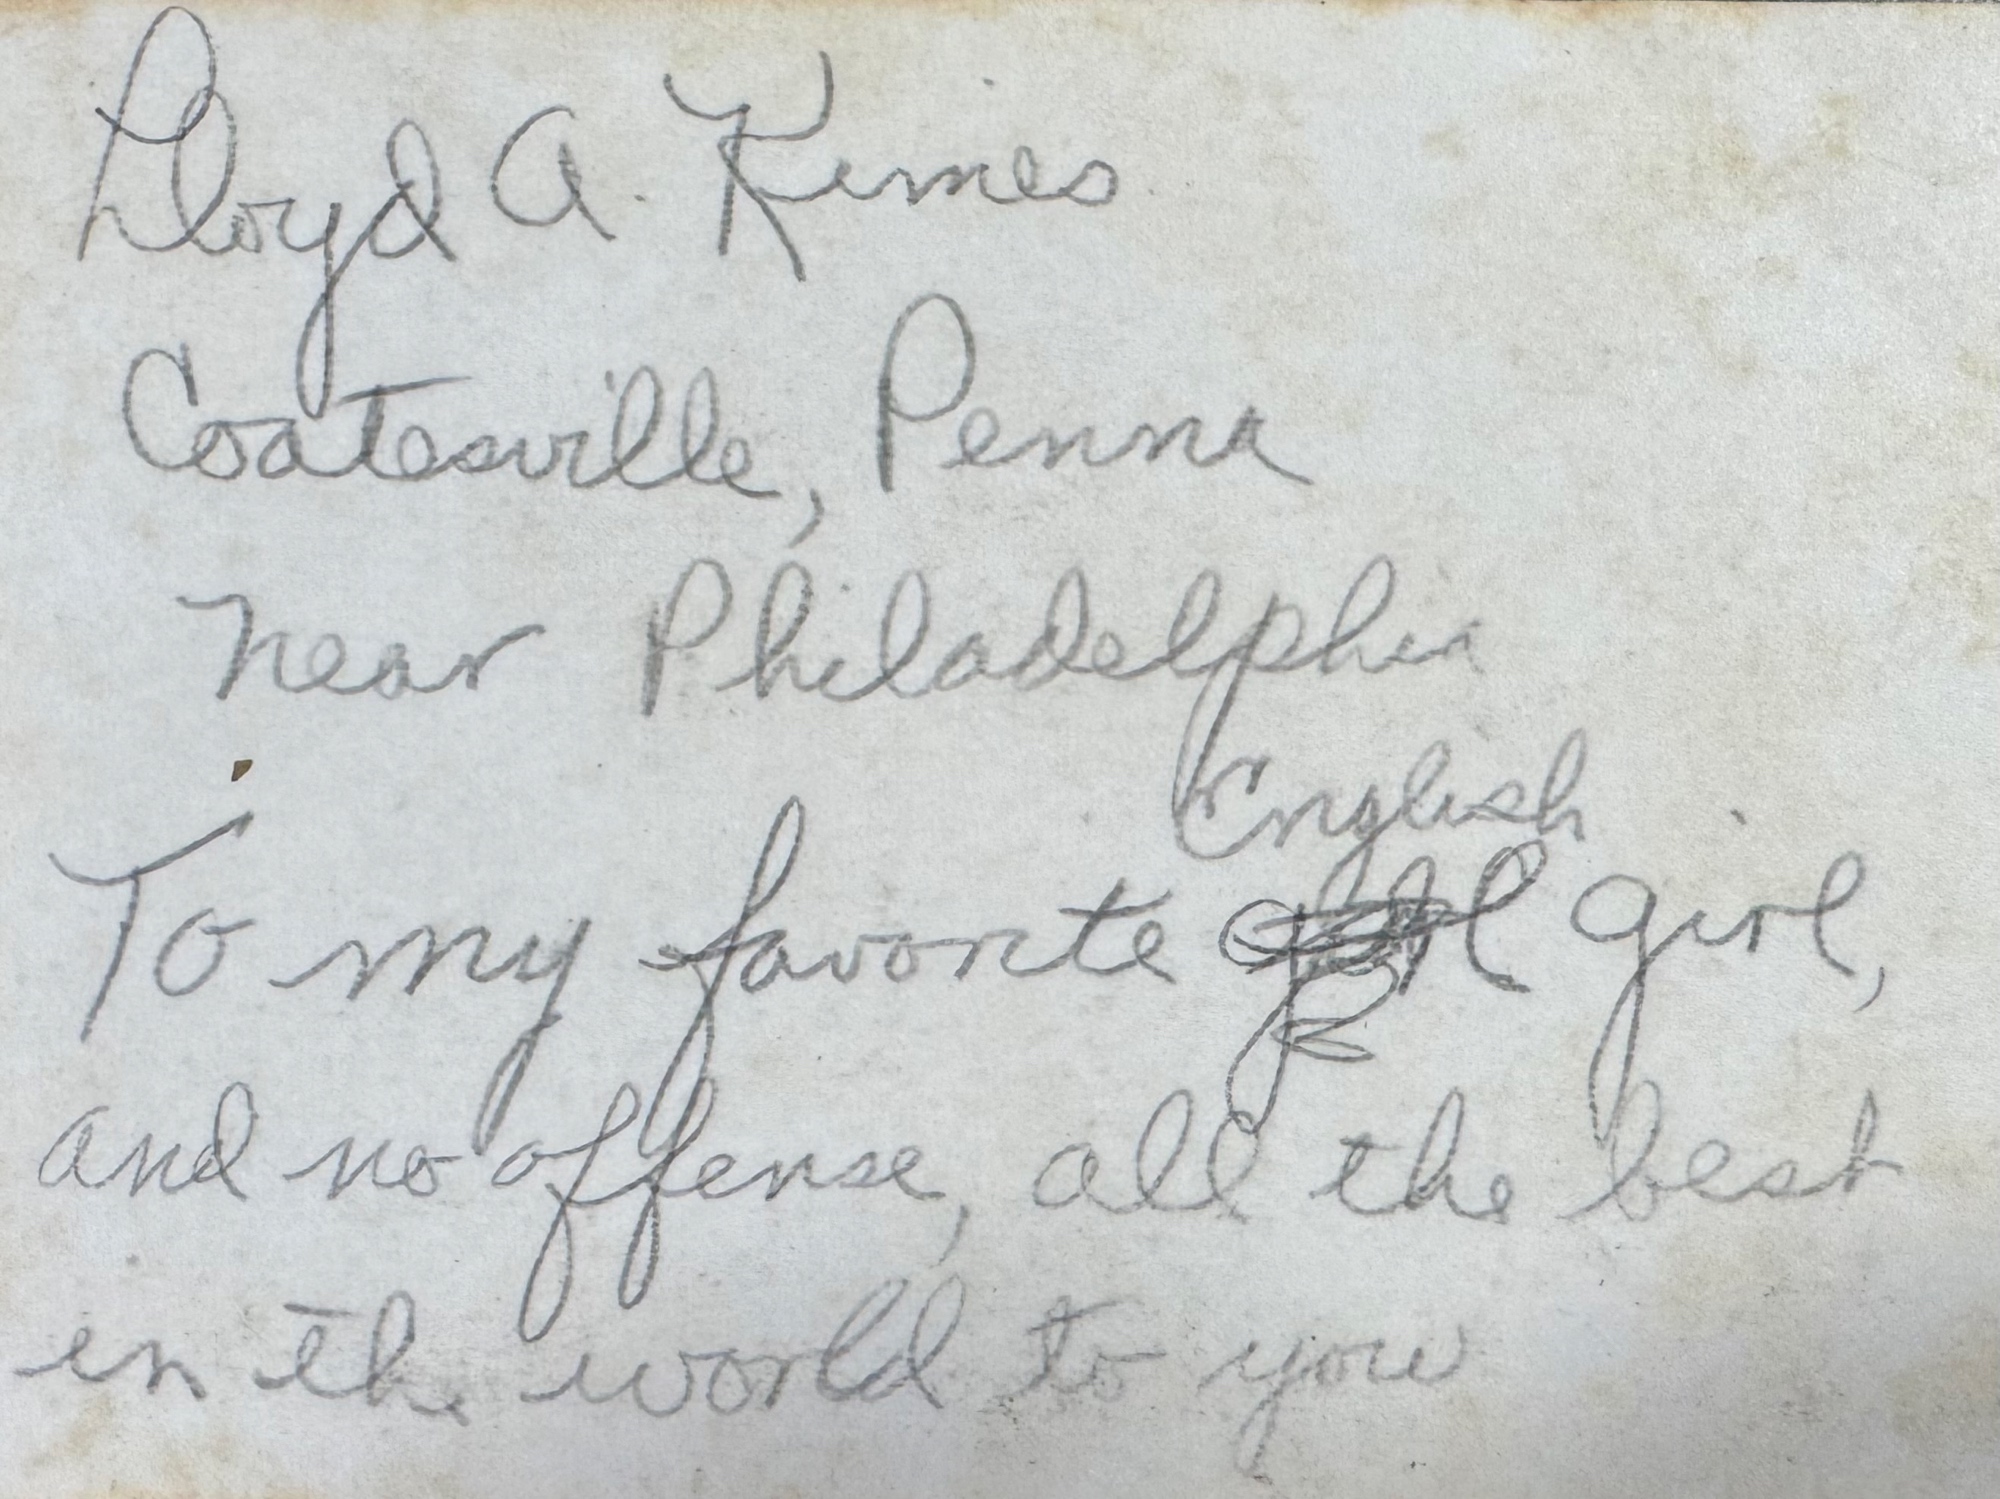 Lloyd A. Kimes
Coatesville, Penna
near Philadelphia
English
To my favorite girl,
and no offense, all the best
in the world to you